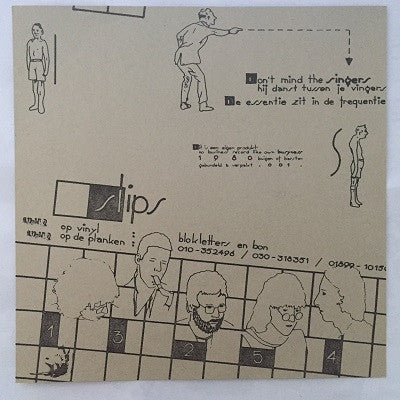 Don't mind the singers
hij danst tussen je vingers
De essentie zit in de frequentie
Dit is een eigen produkt:
no business record like own busyness
1980 buigen of barsten
gebundeld & verpakt . 001 .
S
stips
op vinyl :
op de planken : blokletters en bon
010-352498 / 030-318351 / 01899-10150
1 3 2 5 4